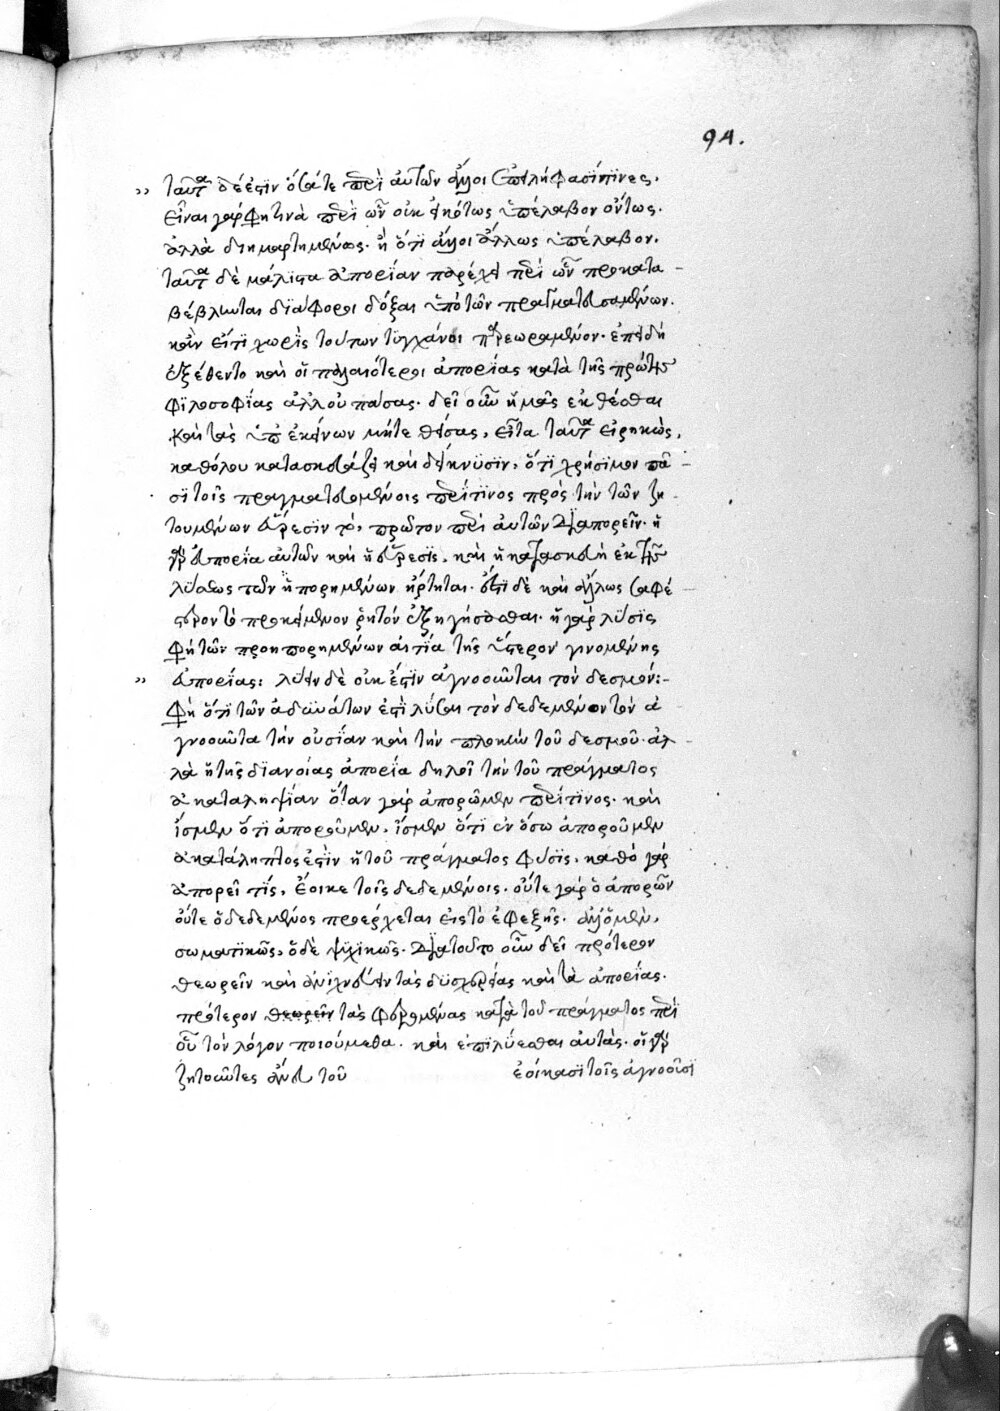 94.
ταῦτα δέ ἐστιν ὅσά τε περὶ αὐτῶν ἄλλοι ὑπειλήφασί τινες.
εἶναι γάρ φησί τινὰ περὶ ὧν οὐκ εἰκότως ὑπέλαβον οὕτως.
ἀλλὰ διημαρτημένως. ἢ ὅτι ἄλλοι ἄλλως ὑπέλαβον.
ταῦτα δὲ μάλιστα ἀπορίαν παρέχει περὶ ὧν προκατα-
βέβληνται διάφοροι δόξαι ὑπὸ τῶν πραγματευσαμένων.
κἂν εἴ τι χωρὶς τούτων τυγχάνοι παρεωραμένον. ἐπειδὴ
ἐξέθεντο καὶ οἱ παλαιότεροι ἀπορίας κατὰ τῆς πρώτης
φιλοσοφίας ἀλλ' οὐ πάσας. δεῖ οὖν ἡμᾶς ἐκθέσθαι
καὶ τὰς ὑπ' ἐκείνων μήτε θείσας, εἶτα ταῦτα εἰρηκὼς,
καθόλου κατασκευάζει καὶ δείκνυσιν, ὅτι χρήσιμον πᾶ-
σι τοῖς πραγματευομένοις περί τινος πρὸς τὴν τῶν ζη-
τουμένων εὕρεσιν τὸ, πρῶτον περὶ αὐτῶν διαπορεῖν. ἡ
γὰρ εὐπορία αὐτῶν καὶ ἡ εὕρεσις, καὶ ἡ κατασκευὴ ἐκ τῆς
λύσεως τῶν ἠπορημένων ἤρτηται. ἔτι δὲ καὶ ἄλλως σαφέ-
στερον τὸ προκείμενον ῥητὸν ἐξηγήσασθαι. ἡ γὰρ λύσις
φησὶ τῶν προηπορημένων αἰτία τῆς ὕστερον γινομένης
εὐπορίας: λύειν δὲ οὐκ ἔστιν ἀγνοοῦντας τὸν δεσμόν:-
φησὶ ὅτι τῶν ἀδυνάτων ἐστὶ λῦσαι τὸν δεδεμένον τὸν ἀ-
γνοοῦντα τὴν οὐσίαν καὶ τὴν πλοκὴν τοῦ δεσμοῦ. ἀλ-
λὰ ἡ τῆς διανοίας ἀπορία δηλοῖ τὴν τοῦ πράγματος
ἀκαταληψίαν ὅταν γὰρ ἀπορῶμεν περί τινος. καὶ
ἴσμεν ὅτι ἀποροῦμεν, ἴσμεν ὅτι ἐν ὅσω ἀποροῦμεν
ἀκατάληπτος ἐστὶν ἡ τοῦ πράγματος φύσις. καθὸ γὰρ
ἀπορεῖ τίς, ἔοικε τοῖς δεδεμένοις. οὔτε γὰρ ὁ ἀπορῶν
οὔτε ὁ δεδεμένος προέρχεται εἰς τὸ ἐφεξῆς. ἀλλ' ὁ μὲν,
σωματικῶς, ὁ δὲ ψυχικῶς. διὰ τοῦτο οὖν δεῖ πρότερον
θεωρεῖν καὶ ἀνιχνεύειν τὰς δυσχερείας καὶ τὰ ἀπορίας.
πρότερον θεωρεῖν τὰς φερομένας κατὰ τοῦ πράγματος περὶ
οὗ τὸν λόγον ποιούμεθα. καὶ ἐπιλύεσθαι αὐτὰς. οἱ γὰρ
ζητοῦντες ἄνευ τοῦ ἐοίκασι τοῖς ἀγνοοῦσι